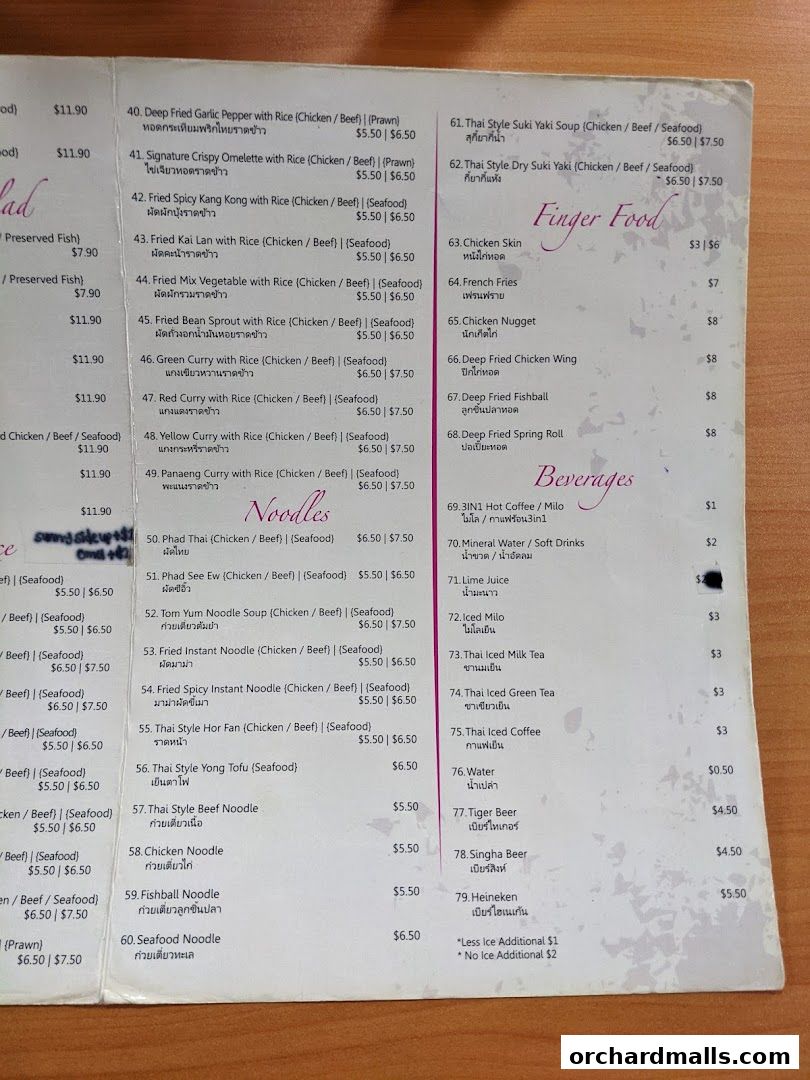 ood} $11.90
ood} $11.90
lad
/ Preserved Fish}
$7.90
/ Preserved Fish}
$7.90
$11.90
$11.90
$11.90
d Chicken / Beef / Seafood}
$11.90
$11.90
$11.90
sunny side up +$1
ce
ef} | {Seafood}
$5.50 | $6.50
/ Beef} | {Seafood}
$5.50 | $6.50
/ Beef} | {Seafood}
$6.50 | $7.50
/ Beef} | {Seafood}
$6.50 | $7.50
/ Beef} | {Seafood}
$5.50 | $6.50
/ Beef} | {Seafood}
$5.50 | $6.50
cken / Beef} | {Seafood}
$5.50 | $6.50
/ Beef} | {Seafood}
$5.50 | $6.50
en / Beef / Seafood}
$6.50 | $7.50
| {Prawn}
$6.50 | $7.50
40. Deep Fried Garlic Pepper with Rice {Chicken / Beef} | {Prawn}
ทอดกระเทียมพริกไทยราดข้าว $5.50 | $6.50
41. Signature Crispy Omelette with Rice {Chicken / Beef} | {Prawn}
ไข่เจียวทอดราดข้าว $5.50 | $6.50
42. Fried Spicy Kang Kong with Rice {Chicken / Beef} | {Seafood}
ผัดผักบุ้งราดข้าว $5.50 | $6.50
43. Fried Kai Lan with Rice {Chicken / Beef} | {Seafood}
ผัดคะน้าราดข้าว $5.50 | $6.50
44. Fried Mix Vegetable with Rice {Chicken / Beef} | {Seafood}
ผัดผักรวมราดข้าว $5.50 | $6.50
45. Fried Bean Sprout with Rice {Chicken / Beef} | {Seafood}
ผัดถั่วงอกน้ำมันหอยราดข้าว $5.50 | $6.50
46. Green Curry with Rice {Chicken / Beef} | {Seafood}
แกงเขียวหวานราดข้าว $6.50 | $7.50
47. Red Curry with Rice {Chicken / Beef} | {Seafood}
แกงแดงราดข้าว $6.50 | $7.50
48. Yellow Curry with Rice {Chicken / Beef} | {Seafood}
แกงกระหรี่ราดข้าว $6.50 | $7.50
49. Panaeng Curry with Rice {Chicken / Beef} | {Seafood}
พะแนงราดข้าว $6.50 | $7.50
Noodles
50. Phad Thai {Chicken / Beef} | {Seafood} $6.50 | $7.50
ผัดไทย
51. Phad See Ew {Chicken / Beef} | {Seafood} $5.50 | $6.50
ผัดซีอิ๊ว
52. Tom Yum Noodle Soup {Chicken / Beef} | {Seafood}
ก๋วยเตี๋ยวต้มยำ $6.50 | $7.50
53. Fried Instant Noodle {Chicken / Beef} | {Seafood}
ผัดมาม่า $5.50 | $6.50
54. Fried Spicy Instant Noodle {Chicken / Beef} | {Seafood}
มาม่าผัดขี้เมา $5.50 | $6.50
55. Thai Style Hor Fan {Chicken / Beef} | {Seafood}
ราดหน้า $5.50 | $6.50
56. Thai Style Yong Tofu {Seafood} $6.50
เย็นตาโฟ
57. Thai Style Beef Noodle $5.50
ก๋วยเตี๋ยวเนื้อ
58. Chicken Noodle $5.50
ก๋วยเตี๋ยวไก่
59. Fishball Noodle $5.50
ก๋วยเตี๋ยวลูกชิ้นปลา
60. Seafood Noodle $6.50
ก๋วยเตี๋ยวทะเล
61. Thai Style Suki Yaki Soup {Chicken / Beef / Seafood}
สุกี้ยากี้น้ำ $6.50 | $7.50
62. Thai Style Dry Suki Yaki {Chicken / Beef / Seafood}
กี้ยากี้แห้ง $6.50 | $7.50
Finger Food
63. Chicken Skin $3 | $6
หนังไก่ทอด
64. French Fries $7
เฟรนฟราย
65. Chicken Nugget $8
นักเก็ตไก่
66. Deep Fried Chicken Wing $8
ปีกไก่ทอด
67. Deep Fried Fishball $8
ลูกชิ้นปลาทอด
68. Deep Fried Spring Roll $8
ปอเปี๊ยะทอด
Beverages
69. 3IN1 Hot Coffee / Milo $1
ไมโล / กาแฟร้อน3in1
70. Mineral Water / Soft Drinks $2
น้ำขวด / น้ำอัดลม
71. Lime Juice
น้ำมะนาว
72. Iced Milo $3
ไมโลเย็น
73. Thai Iced Milk Tea $3
ชานมเย็น
74. Thai Iced Green Tea $3
ชาเขียวเย็น
75. Thai Iced Coffee $3
กาแฟเย็น
76. Water $0.50
น้ำเปล่า
77. Tiger Beer $4.50
เบียร์ไทเกอร์
78. Singha Beer $4.50
เบียร์สิงห์
79. Heineken $5.50
เบียร์ไฮเนเก้น
*Less Ice Additional $1
* No Ice Additional $2
orchardmalls.com